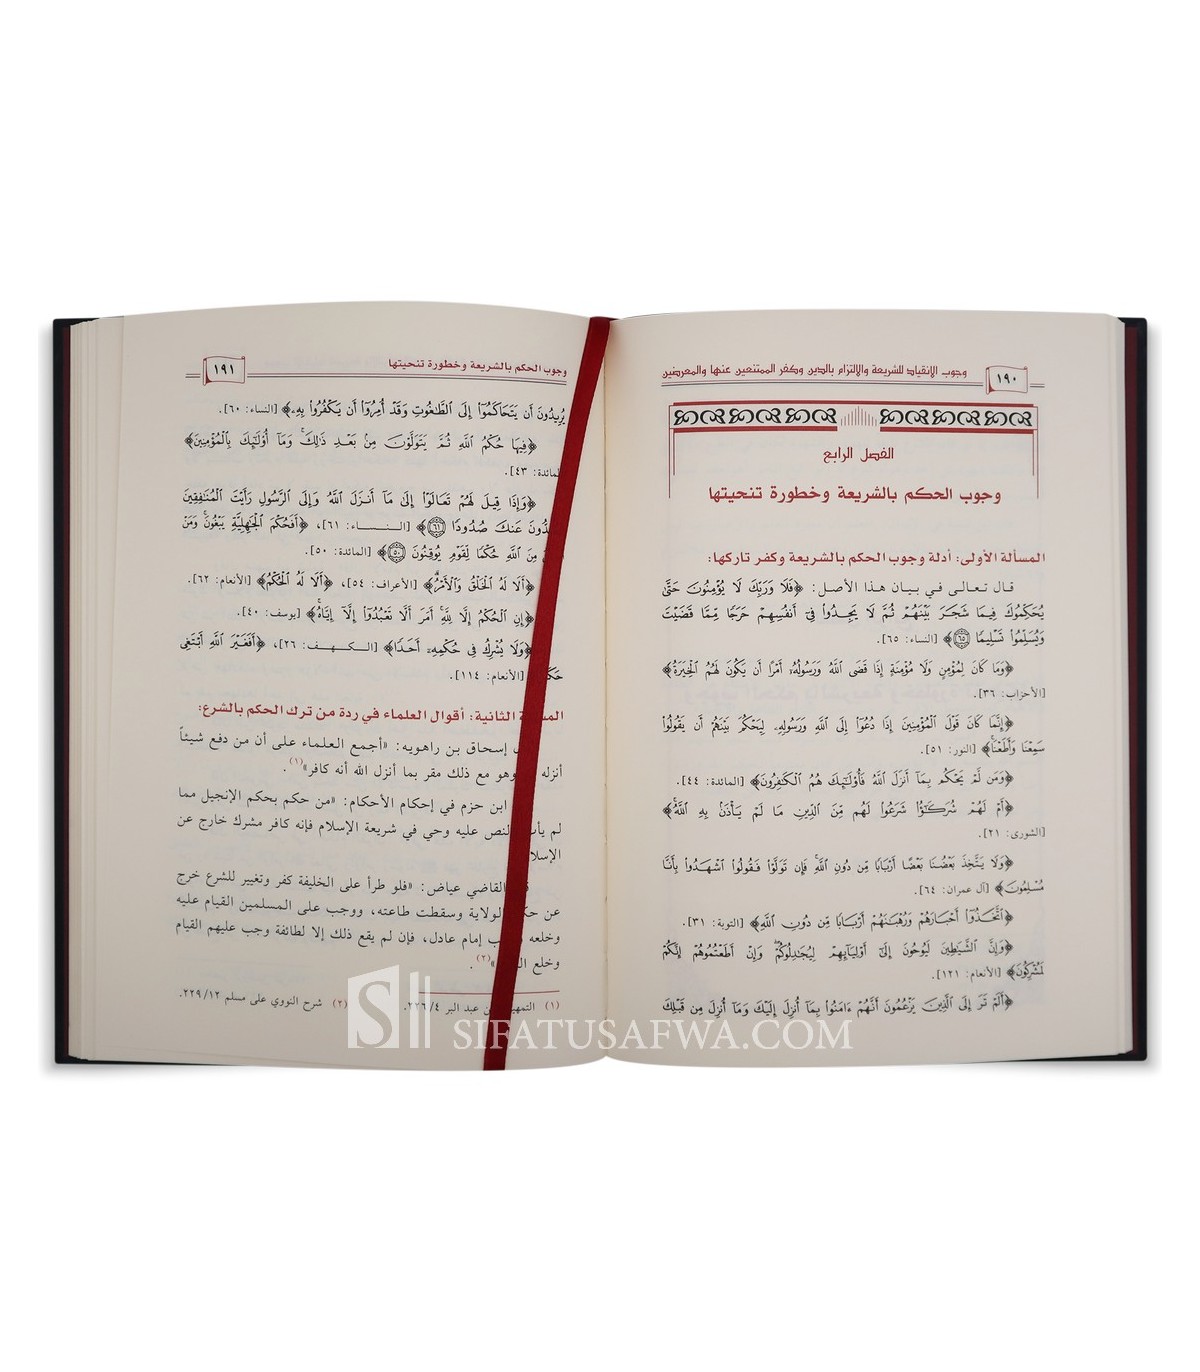 ١٩٠
وجوب الانقياد للشريعة والالتزام بالدين وكفر الممتنعين عنها والمعرضين
الفصل الرابع
وجوب الحكم بالشريعة وخطورة تنحيتها
المسألة الأولى: أدلة وجوب الحكم بالشريعة وكفر تاركها:
قال تعالى في بيان هذا الأصل: ﴿فَلَا وَرَبِّكَ لَا يُؤْمِنُونَ حَتَّىٰ
يُحَكِّمُوكَ فِيمَا شَجَرَ بَيْنَهُمْ ثُمَّ لَا يَجِدُوا۟ فِىٓ أَنفُسِهِمْ حَرَجًا مِّمَّا قَضَيْتَ
وَيُسَلِّمُوا۟ تَسْلِيمًا ٦٥﴾ [النساء: ٦٥].
﴿وَمَا كَانَ لِمُؤْمِنٍ وَلَا مُؤْمِنَةٍ إِذَا قَضَى ٱللَّهُ وَرَسُولُهُۥٓ أَمْرًا أَن يَكُونَ لَهُمُ ٱلْخِيَرَةُ﴾
[الأحزاب: ٣٦].
﴿إِنَّمَا كَانَ قَوْلَ ٱلْمُؤْمِنِينَ إِذَا دُعُوٓا۟ إِلَى ٱللَّهِ وَرَسُولِهِۦ لِيَحْكُمَ بَيْنَهُمْ أَن يَقُولُوا۟
سَمِعْنَا وَأَطَعْنَا﴾ [النور: ٥١].
﴿وَمَن لَّمْ يَحْكُم بِمَآ أَنزَلَ ٱللَّهُ فَأُو۟لَـٰٓئِكَ هُمُ ٱلْكَـٰفِرُونَ﴾ [المائدة: ٤٤].
﴿أَمْ لَهُمْ شُرَكَـٰٓؤُا۟ شَرَعُوا۟ لَهُم مِّنَ ٱلدِّينِ مَا لَمْ يَأْذَنۢ بِهِ ٱللَّهُ﴾
[الشورى: ٢١].
﴿وَلَا يَتَّخِذَ بَعْضُنَا بَعْضًا أَرْبَابًا مِّن دُونِ ٱللَّهِ فَإِن تَوَلَّوْا۟ فَقُولُوا۟ ٱشْهَدُوا۟ بِأَنَّا
مُسْلِمُونَ﴾ [آل عمران: ٦٤].
﴿ٱتَّخَذُوٓا۟ أَحْبَارَهُمْ وَرُهْبَـٰنَهُمْ أَرْبَابًا مِّن دُونِ ٱللَّهِ﴾ [التوبة: ٣١].
﴿وَإِنَّ ٱلشَّيَـٰطِينَ لَيُوحُونَ إِلَىٰٓ أَوْلِيَآئِهِمْ لِيُجَـٰدِلُوكُمْ وَإِنْ أَطَعْتُمُوهُمْ إِنَّكُمْ
لَمُشْرِكُونَ﴾ [الأنعام: ١٢١].
﴿أَلَمْ تَرَ إِلَى ٱلَّذِينَ يَزْعُمُونَ أَنَّهُمْ ءَامَنُوا۟ بِمَآ أُنزِلَ إِلَيْكَ وَمَآ أُنزِلَ مِن قَبْلِكَ
وجوب الحكم بالشريعة وخطورة تنحيتها
١٩١
يُرِيدُونَ أَن يَتَحَاكَمُوٓا۟ إِلَى ٱلطَّـٰغُوتِ وَقَدْ أُمِرُوٓا۟ أَن يَكْفُرُوا۟ بِهِۦ﴾ [النساء: ٦٠].
﴿فِيهَا حُكْمُ ٱللَّهِ ثُمَّ يَتَوَلَّوْنَ مِنۢ بَعْدِ ذَٰلِكَ وَمَآ أُو۟لَـٰٓئِكَ بِٱلْمُؤْمِنِينَ﴾
المائدة: ٤٣].
﴿وَإِذَا قِيلَ لَهُمْ تَعَالَوْا۟ إِلَىٰ مَآ أَنزَلَ ٱللَّهُ وَإِلَى ٱلرَّسُولِ رَأَيْتَ ٱلْمُنَـٰفِقِينَ
عَنكَ صُدُودًا ٦١﴾ [النساء: ٦١]، ﴿أَفَحُكْمَ ٱلْجَـٰهِلِيَّةِ يَبْغُونَ وَمَنْ
مِنَ ٱللَّهِ حُكْمًا لِّقَوْمٍ يُوقِنُونَ ٥٠﴾ [المائدة: ٥٠].
﴿أَلَا لَهُ ٱلْخَلْقُ وَٱلْأَمْرُ﴾ [الأعراف: ٥٤]، ﴿أَلَا لَهُ ٱلْحُكْمُ﴾ [الأنعام: ٦٢].
﴿إِنِ ٱلْحُكْمُ إِلَّا لِلَّهِ أَمَرَ أَلَّا تَعْبُدُوٓا۟ إِلَّآ إِيَّاهُ﴾ [يوسف: ٤٠].
﴿وَلَا يُشْرِكُ فِى حُكْمِهِۦٓ أَحَدًا﴾ [الكهف: ٢٦]، ﴿أَفَغَيْرَ ٱللَّهِ أَبْتَغِى
[الأنعام: ١١٤].
الثانية: أقوال العلماء في ردة من ترك الحكم بالشرع:
إسحاق بن راهويه: «أجمع العلماء على أن من دفع شيئاً
أنزله وهو مع ذلك مقر بما أنزل الله أنه كافر»(١).
ابن حزم في إحكام الأحكام: «من حكم بحكم الإنجيل مما
لم يأت النص عليه وحي في شريعة الإسلام فإنه كافر مشرك خارج عن
القاضي عياض: «فلو طرأ على الخليفة كفر وتغيير للشرع خرج
عن الولاية وسقطت طاعته، ووجب على المسلمين القيام عليه
وخلعه إمام عادل، فإن لم يقع ذلك إلا لطائفة وجب عليهم القيام
وخلع »(٢).
(١) عبد البر ٢٢٦/٤.
(٢) شرح النووي على مسلم ٢٢٩/١٢.
SIFATUSAFWA.COM